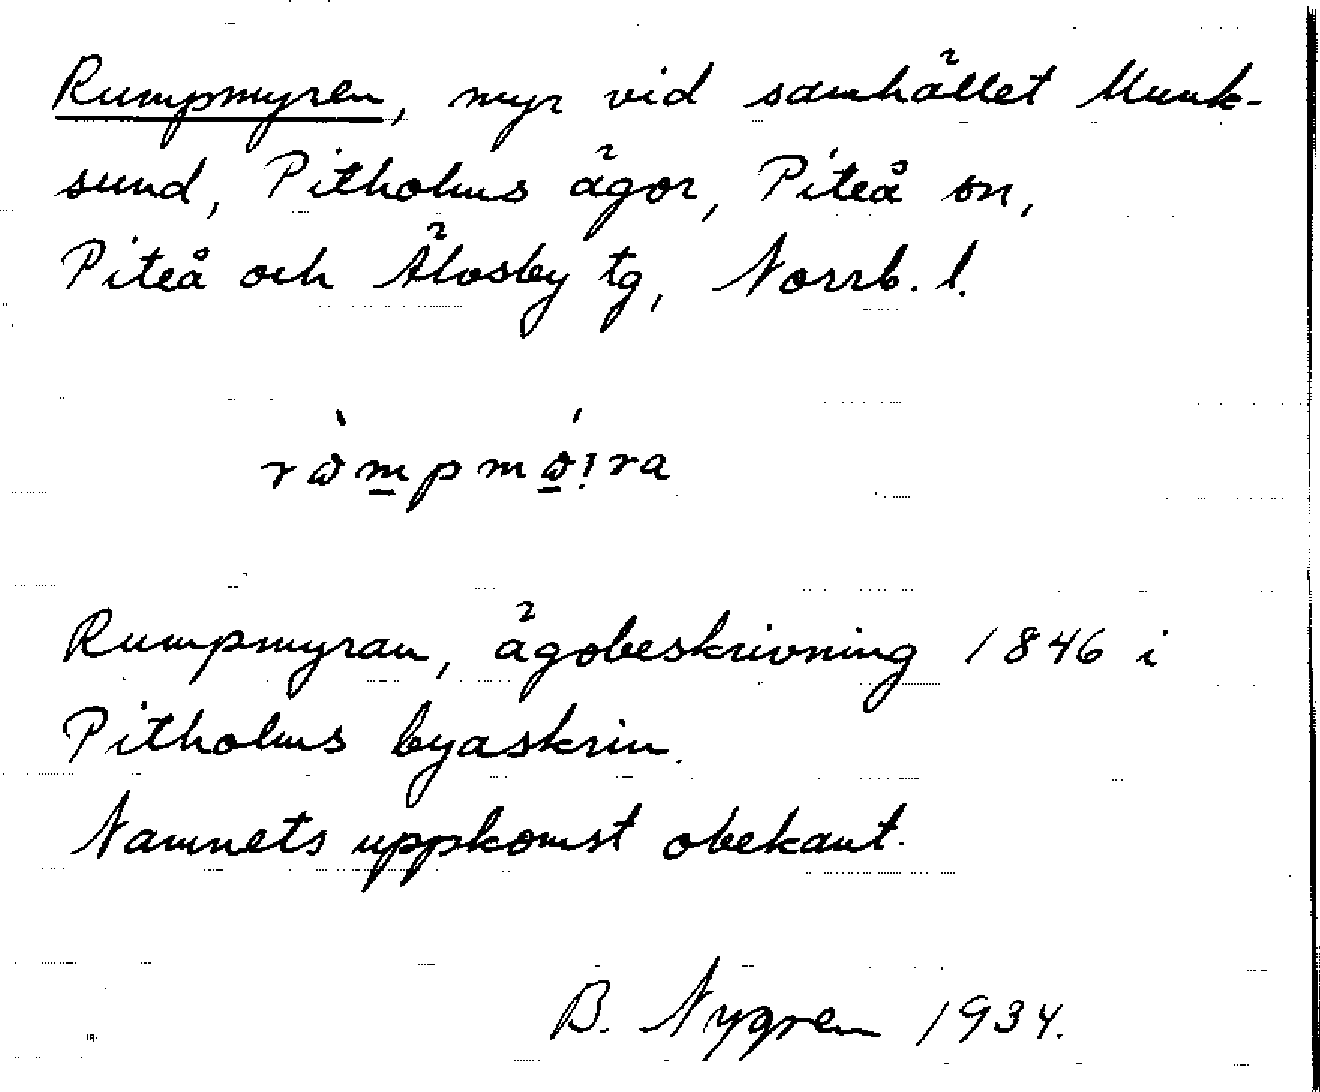 Rumpmyren, myr vid samhället Munk-
sund, Pitholms ägor, Piteå sn,
Piteå och Älvsby tg, Norrb. l.
Rumpmyran, ägobeskrivning 1846 i
Pitholms byaskrin.
Namnets uppkomst obekant.
B. Nygren 1934.